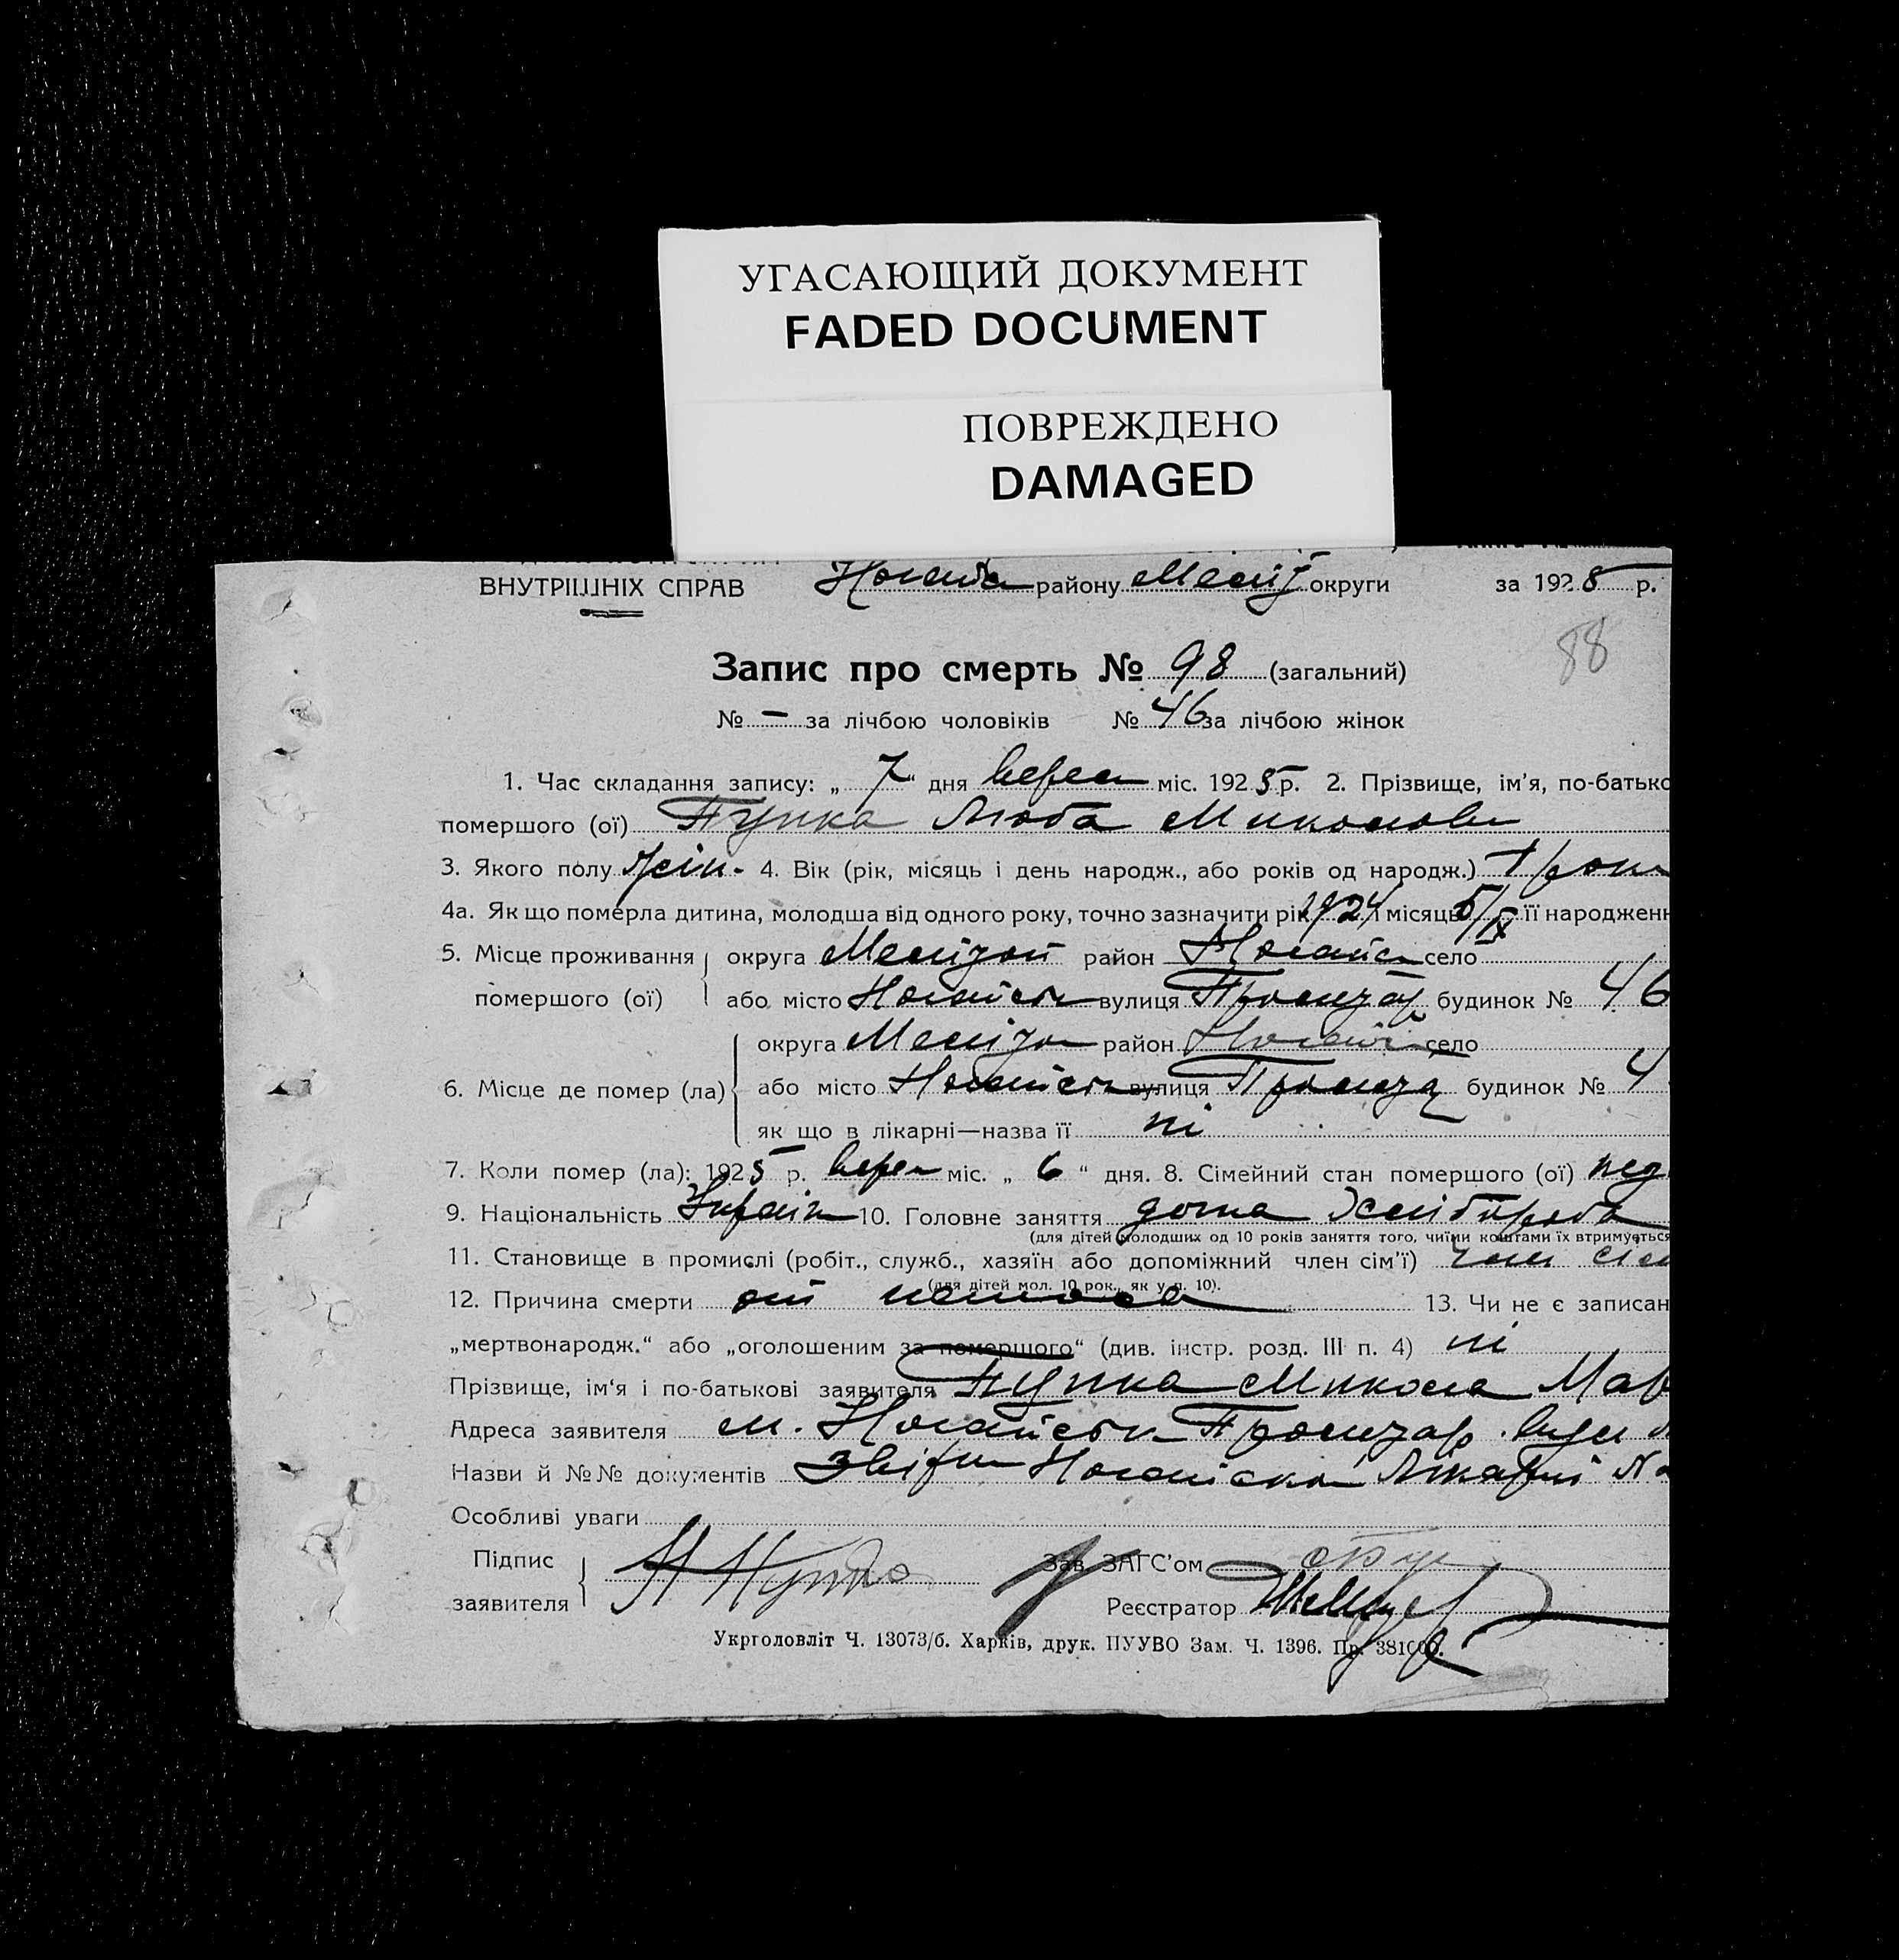 УГАСАЮЩИЙ ДОКУМЕНТ
FADED DOCUMENT
ПОВРЕЖДЕНО
DAMAGED
ВНУТРІШНІХ СПРАВ району округи за 1928 р.
88
Запис про смерть № 98 (загальний)
№ – за лічбою чоловіків № 46 за лічбою жінок
1. Час складання запису: „ 7 “ дня верес міс. 1925 р. 2. Прізвище, ім'я, по-батько
помершого (ої) Пупка Люба Миколов
3. Якого полу жін. 4. Вік (рік, місяць і день народж., або років од народж.) 1 рок
4а. Як що померла дитина, молодша від одного року, точно зазначити рік 1924 і місяць 5/IX її народженн
5. Місце проживання округа Меліт район Ногайск село
помершого (ої) або місто Ногайськ вулиця будинок № 46
округа Меліт район Ногай село
6. Місце де помер (ла) або місто Ногайськ вулиця будинок № 4
як що в лікарні—назва її ні
7. Коли помер (ла): 1925 р. верес міс. „ 6 “ дня. 8. Сімейний стан помершого (ої)
9. Національність Україн 10. Головне заняття дочка Хлібороба
(для дітей молодших од 10 років заняття того, чиїми коштами їх втримується
11. Становище в промислі (робіт., служб., хазяїн або допоміжний член сім'ї) член сім
(для дітей мол. 10 рок., як у п. 10).
12. Причина смерти от поноса 13. Чи не є записан
„мертвонародж.“ або „оголошеним за помершого“ (див. інстр. розд. III п. 4) ні
Прізвище, ім'я і по-батькові заявителя Пупка Микола
Адреса заявителя м. Ногайськ
Назви й №№ документів Ногайской Лікарні
Особливі уваги
Підпис Зав. ЗАГС'ом
заявителя Реєстратор
Укрголовліт Ч. 13073/б. Харків, друк. ПУУВО Зам. Ч. 1396. Пр. 381000.